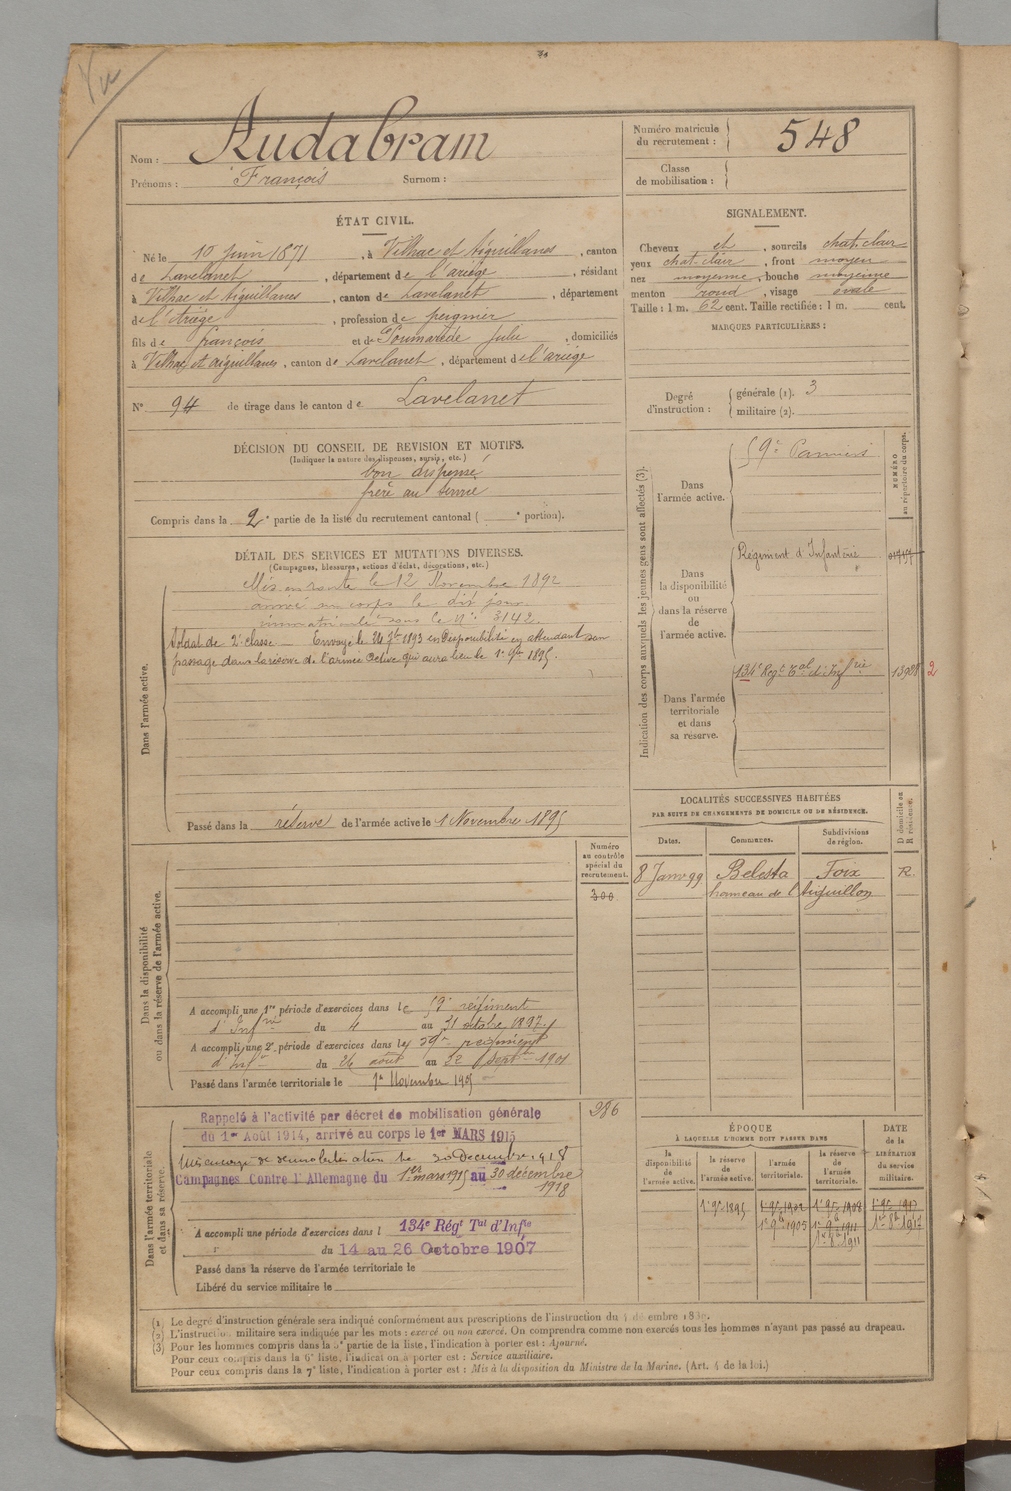 Vu
Nom : Audabram
Prénoms : François Surnom :
Numéro matricule du recrutement : 548
Classe de mobilisation :
ÉTAT CIVIL.
Né le 10 juin 1871, à Vilhac et Aiguillanes, canton
de Lavelanet, département de l'ariége, résidant
à Vilhac et Aiguillanes, canton de Lavelanet, département
de l'Ariége, profession de peignier
fils de françois et de Goumarède Julie, domiciliés
à Vilhac et aiguillanes, canton de Lavelanet, département de l'ariége
N° 94 de tirage dans le canton de Lavelanet
SIGNALEMENT.
Cheveux et, sourcils chat. clair
yeux chat. clair, front moyen
nez moyenne, bouche moyenne
menton rond, visage ovale
Taille : 1 m. 62 cent. Taille rectifiée : 1 m. cent.
MARQUES PARTICULIÈRES :
Degré d'instruction : générale (1). 3
militaire (2).
DÉCISION DU CONSEIL DE REVISION ET MOTIFS.
(Indiquer la nature des dispenses, sursis, etc.)
bon dispensé
frère au service
Compris dans la 2e partie de la liste du recrutement cantonal ( e portion).
DÉTAIL DES SERVICES ET MUTATIONS DIVERSES.
(Campagnes, blessures, actions d'éclat, décorations, etc.)
Dans l'armée active.
Mis en route le 12 Novembre 1892
arrivé au corps le dit jour
immatriculé sous le n° 3142.
Soldat de 2e classe Envoyé le 24 7bre 1893 en Disponibilité en attendant son
passage dans la réserve de l'armée active qui aura lieu le 1er 9bre 1895.
Passé dans la réserve de l'armée active le 1 Novembre 1895
Indication des corps auxquels les jeunes gens sont affectés (3).
NUMÉRO au répertoire du corps.
Dans l'armée active.
59e Pamiers
Dans la disponibilité ou dans la réserve de l'armée active.
Régiment d'Infanterie
Dans l'armée territoriale et dans sa réserve.
134e Régt Tal d'Infrie 13988 2
LOCALITÉS SUCCESSIVES HABITÉES
PAR SUITE DE CHANGEMENTS DE DOMICILE OU DE RÉSIDENCE.
Dates. Communes. Subdivisions de région. D domicile ou R résidence.
8 Janv 99 Belesta Foix R.
hameau de l'Aiguillon
Numéro au contrôle spécial du recrutement.
300
Dans la disponibilité ou dans la réserve de l'armée active.
A accompli une 1re période d'exercices dans le 59e régiment
d'Infrie du 4 au 31 octobre 1897.
A accompli une 2e période d'exercices dans le 59e régiment
d'Infie du 26 août au 22 Septbre 1901
Passé dans l'armée territoriale le 1er Novembre 1905
286
Dans l'armée territoriale et dans sa réserve.
Rappelé à l'activité par décret de mobilisation générale
du 1er Août 1914, arrivé au corps le 1er MARS 1915
Mis en congé de démobilisation le 30 Decembre 1918
Campagnes Contre l'Allemagne du 1er mars 1915 au 30 décembre
1918
A accompli une période d'exercices dans l 134e Régt Tal d'Infie
du 14 au 26 Octobre 1907
Passé dans la réserve de l'armée territoriale le
Libéré du service militaire le
ÉPOQUE
À LAQUELLE L'HOMME DOIT PASSER DANS
DATE de la LIBÉRATION du service militaire.
la disponibilité de l'armée active. la réserve de l'armée active. l'armée territoriale. la réserve de l'armée territoriale.
1er 9bre 1895 1er 9bre 1902 1er 9bre 1908 1er 9bre 1917
1er 9bre 1905 1er 9bre 1911 1er 8bre 1917
1er 8bre 1911
(1) Le degré d'instruction générale sera indiqué conformément aux prescriptions de l'instruction du
(2) L'instruction militaire sera indiquée par les mots : exercé ou non exercé. On comprendra comme non exercés tous les hommes n'ayant pas passé au drapeau.
(3) Pour les hommes compris dans la 5e partie de la liste, l'indication à porter est : Ajourné.
Pour ceux compris dans la 6e liste, l'indication à porter est : Service auxiliaire.
Pour ceux compris dans la 7e liste, l'indication à porter est : Mis à la disposition du Ministre de la Marine. (Art. 4 de la loi.)